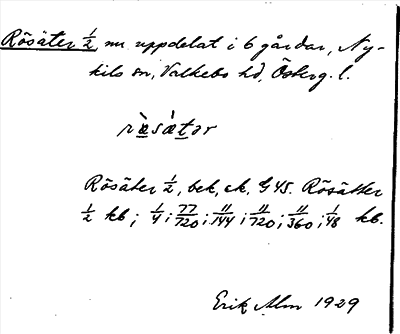 Rösäter 1/2, nu uppdelat i 6 gårdar, Ny-
kils sn, Valkebo hd, Österg. l.
rǜsætər
Rösäter 1/2, bek, sk, G 45. Rösätter
1/2 kb; 1/4; 77/720; 11/144; 11/720; 11/360; 1/48 kb.
Erik Alm 1929